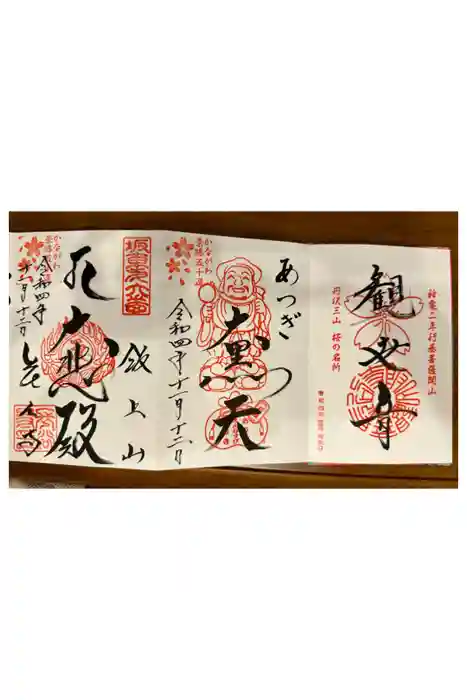 神亀二年行基菩薩開山
観世音
丹沢三山 桜の名所
あつぎ
大黒天
かながわ
景勝五十選
令和四年十一月十二日
坂東第六番
飯上山
大悲殿
かながわ
令和四年
十一月十二日